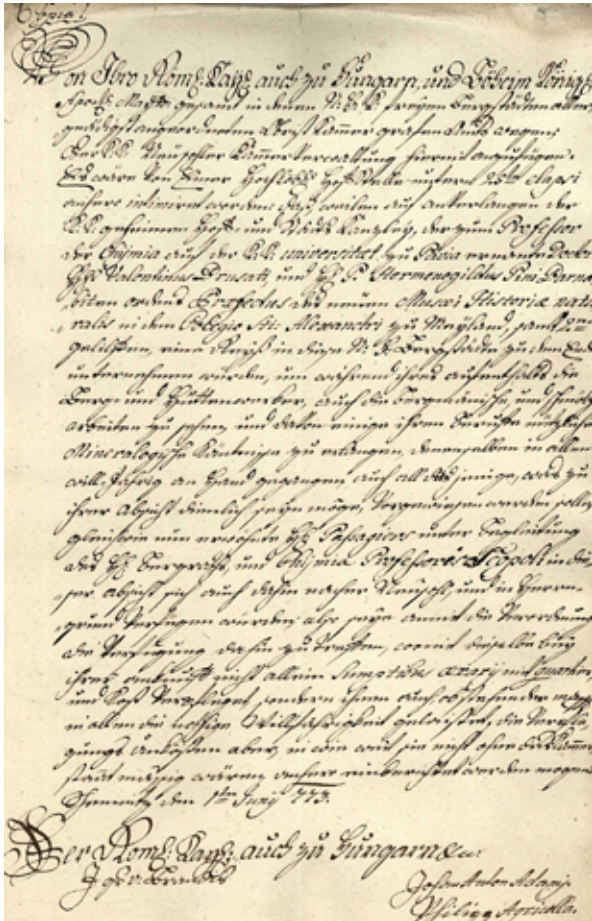 Von Ihro Röm: Kays: auch zu Hungarn, und Böheim Königl:
Apost: Maytt: gesamt in denen N: H: K: freyen Bergstädten aller
gnädigst angeordneten Obrist Kammer grafen Amts wegen
Der K: K: Neusohler Kammer Verwaltung hiermit anzufügen:
Es wäre von Einer Hochlöbl: Hof Stelle unterm elapsi
anhero intimiret worden: daß, weilen auf anverlangen der
K: K: geheimen Hof: und Staats Kanzley, der zum Professor
der Chymia auf der K: K: universitaet zu Pavia ernante Doctor
H: Valentinus Brusati, und H: P: Hermenegildus Pini Barna-
biten ordens Praefectus des neuen Musei Historiae natu
ralis in dem Collegio Sti: Alexandri zu Mayland, samt
gehilffen, eine Reiß in diese N: H: Bergstädte zu dem Ende
unternehmen würden, um während ihres aufenthalts die
Berg- und Hüttenwerker, auch die bergmänische, und
arbeiten zu sehen, und davon einige ihrem Berufe nützliche
Mineralogische Käntnisse zu erlangen, denenselben in allen
willfährig an Hand gegangen auch all das jenige, was zu
ihrer Absicht dienlich seyn möge, vorgewiesen werden solle,
gleichwie nun erwehnte H: Passagiers unter begleitung
des H: Bergraths, und Chymia Professoris Scopoli in die-
ser absicht sich auch dahin nacher Neusohl, und in Herrn-
grund verfügen würden, also seye anmit die Verordnung
die Verfügung dahin zu treffen, womit dieselbe bey
ihrer ankunft nicht allein Sumptibus aerarij mit quartier,
und Kost verpfleget sondern ihnen auch
in allen die nöthige Willfährigkeit geleistet, die
Unkösten aber, in wie weit sie nicht
mässig wären, anhero einberichtet werden mögen
Schemnitz den 1ten Junij 773.
Der Röm: Kays: auch zu Hungarn
Johan Anton Adami
Philipp Agricolla